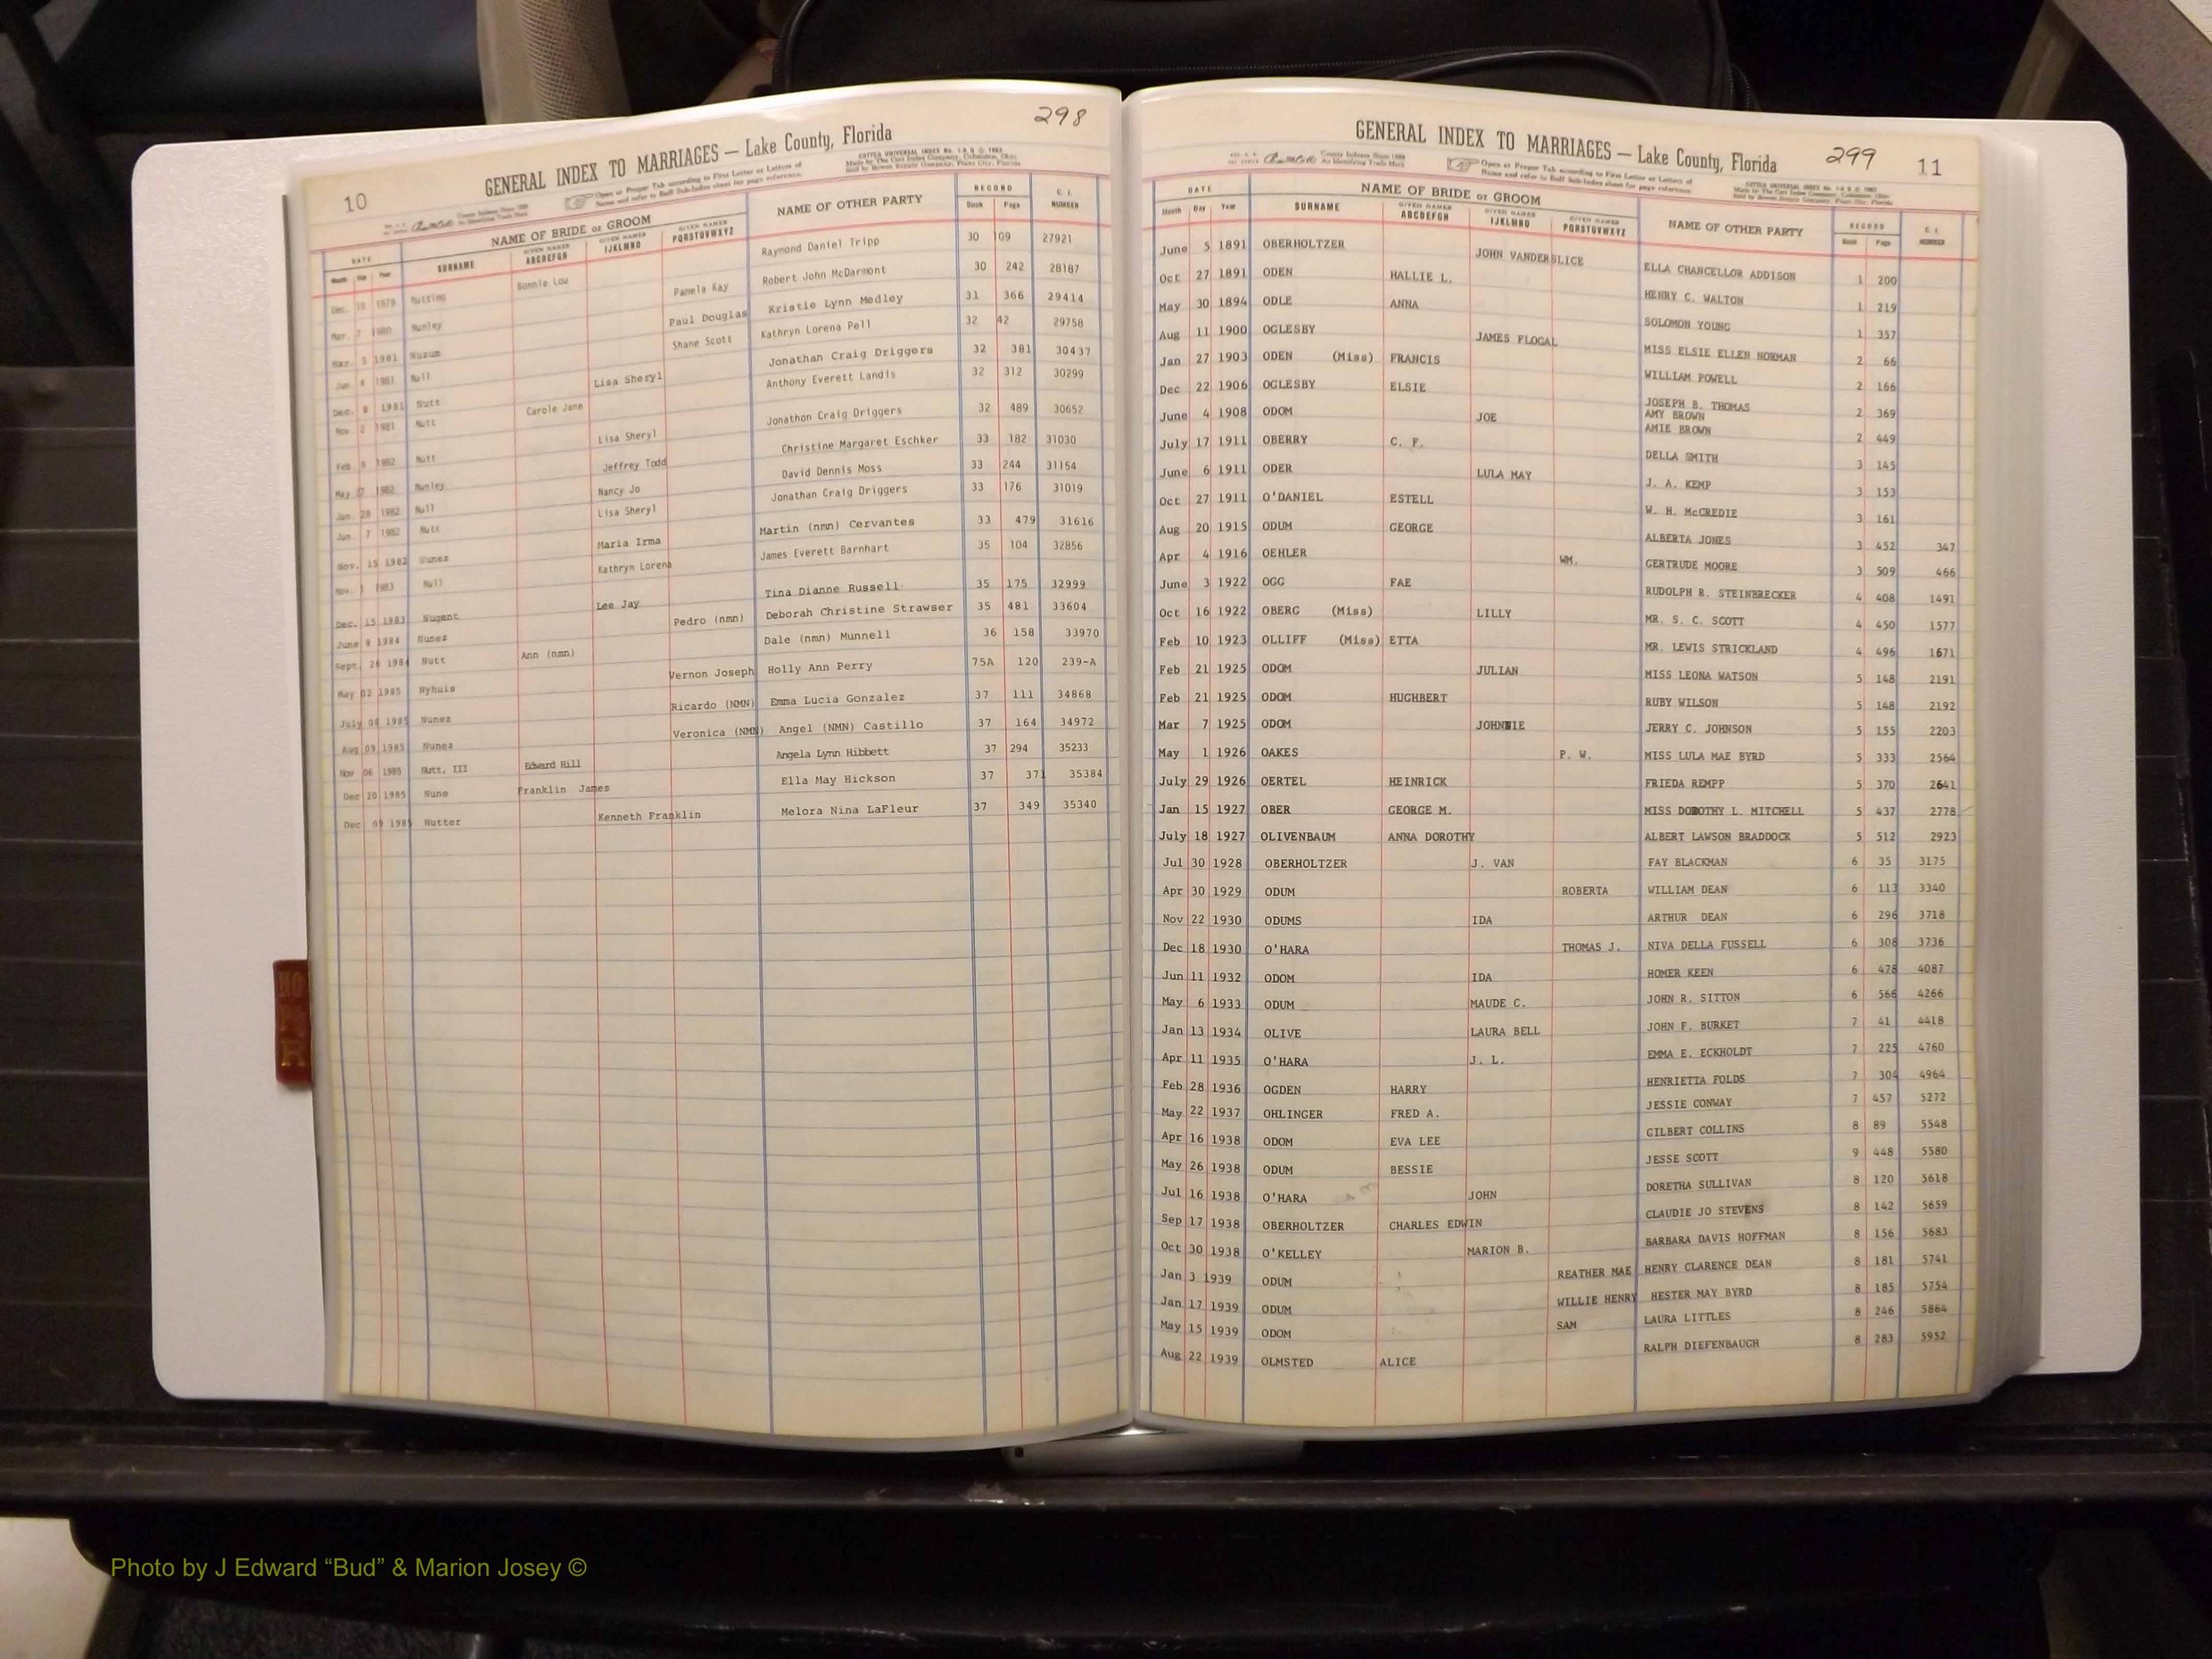 298
10
GENERAL INDEX TO MARRIAGES — Lake County, Florida
Open at Proper Tab according to First Letter or Letters of
Name and refer to Buff Sub-Index sheet for page reference.
DATE NAME OF BRIDE or GROOM NAME OF OTHER PARTY RECORD C. I. NUMBER
Month Day Year SURNAME GIVEN NAMES ABCDEFGH GIVEN NAMES IJKLMNO GIVEN NAMES PQRSTUVWXYZ Book Page
Dec. 10 1979 Nutting Bonnie Lou Raymond Daniel Tripp 30 109 27921
Mar. 7 1980 Nunley Pamela Kay Robert John McDarmont 30 242 28187
Mar. 5 1981 Nuzum Paul Douglas Kristie Lynn Medley 31 366 29414
Jun 4 1981 Null Shane Scott Kathryn Lorena Pell 32 42 29758
Dec. 8 1981 Nutt Lisa Sheryl Jonathan Craig Driggers 32 381 30437
Nov. 2 1981 Nutt Carole Jane Anthony Everett Landis 32 312 30299
Feb 8 1982 Nutt Lisa Sheryl Jonathon Craig Driggers 32 489 30652
May 7 1982 Nunley Jeffrey Todd Christine Margaret Eschker 33 182 31030
Jun. 28 1982 Null Nancy Jo David Dennis Moss 33 244 31154
Jun. 7 1982 Nutt Lisa Sheryl Jonathan Craig Driggers 33 176 31019
Nov. 15 1982 Nunez Maria Irma Martin (nmn) Cervantes 33 479 31616
Nov. 1 1983 Null Kathryn Lorena James Everett Barnhart 35 104 32856
Dec. 15 1983 Nugent Lee Jay Tina Dianne Russell 35 175 32999
June 8 1984 Nunez Pedro (nmn) Deborah Christine Strawser 35 481 33604
Sept. 26 1984 Nutt Ann (nmn) Dale (nmn) Munnell 36 158 33970
May 02 1985 Nyhuis Vernon Joseph Holly Ann Perry 75A 120 239-A
July 08 1985 Nunez Ricardo (NMN) Emma Lucia Gonzalez 37 111 34868
Aug 09 1985 Nunez Veronica (NMN) Angel (NMN) Castillo 37 164 34972
Nov 06 1985 Nutt, III Edward Hill Angela Lynn Hibbett 37 294 35233
Dec 20 1985 Nune Franklin James Ella May Hickson 37 371 35384
Dec 09 1985 Nutter Kenneth Franklin Melora Nina LaFleur 37 349 35340
299
11
GENERAL INDEX TO MARRIAGES — Lake County, Florida
Open at Proper Tab according to First Letter or Letters of
Name and refer to Buff Sub-Index sheet for page reference.
DATE NAME OF BRIDE or GROOM NAME OF OTHER PARTY RECORD C. I. NUMBER
Month Day Year SURNAME GIVEN NAMES ABCDEFGH GIVEN NAMES IJKLMNO GIVEN NAMES PQRSTUVWXYZ Book Page
June 5 1891 OBERHOLTZER JOHN VANDERSLICE ELLA CHANCELLOR ADDISON 1 200
Oct 27 1891 ODEN HALLIE L. HENRY C. WALTON 1 219
May 30 1894 ODLE ANNA SOLOMON YOUNG 1 357
Aug 11 1900 OGLESBY JAMES FLOGAL MISS ELSIE ELLEN NORMAN 2 66
Jan 27 1903 ODEN (Miss) FRANCIS WILLIAM POWELL 2 166
Dec 22 1906 OGLESBY ELSIE JOSEPH B. THOMAS 2 369
June 4 1908 ODOM JOE AMY BROWN
AMIE BROWN 2 449
July 17 1911 OBERRY C. F. DELLA SMITH 3 145
June 6 1911 ODER LULA MAY J. A. KEMP 3 153
Oct 27 1911 O'DANIEL ESTELL W. H. McCREDIE 3 161
Aug 20 1915 ODUM GEORGE ALBERTA JONES 3 452 347
Apr 4 1916 OEHLER WM. GERTRUDE MOORE 3 509 466
June 3 1922 OGG FAE RUDOLPH R. STEINBRECKER 4 408 1491
Oct 16 1922 OBERG (Miss) LILLY MR. S. C. SCOTT 4 450 1577
Feb 10 1923 OLLIFF (Miss) ETTA MR. LEWIS STRICKLAND 4 496 1671
Feb 21 1925 ODOM JULIAN MISS LEONA WATSON 5 148 2191
Feb 21 1925 ODOM HUGHBERT RUBY WILSON 5 148 2192
Mar 7 1925 ODOM JOHNNIE JERRY C. JOHNSON 5 155 2203
May 1 1926 OAKES P. W. MISS LULA MAE BYRD 5 333 2564
July 29 1926 OERTEL HEINRICK FRIEDA REMPP 5 370 2641
Jan 15 1927 OBER GEORGE M. MISS DOROTHY L. MITCHELL 5 437 2778
July 18 1927 OLIVENBAUM ANNA DOROTHY ALBERT LAWSON BRADDOCK 5 512 2923
Jul 30 1928 OBERHOLTZER J. VAN FAY BLACKMAN 6 35 3175
Apr 30 1929 ODUM ROBERTA WILLIAM DEAN 6 113 3340
Nov 22 1930 ODUMS IDA ARTHUR DEAN 6 296 3718
Dec 18 1930 O'HARA THOMAS J. NIVA DELLA FUSSELL 6 308 3736
Jun 11 1932 ODOM IDA HOMER KEEN 6 478 4087
May 6 1933 ODUM MAUDE C. JOHN R. SITTON 6 566 4266
Jan 13 1934 OLIVE LAURA BELL JOHN F. BURKET 7 41 4418
Apr 11 1935 O'HARA J. L. EMMA E. ECKHOLDT 7 225 4760
Feb 28 1936 OGDEN HARRY HENRIETTA FOLDS 7 304 4964
May 22 1937 OHLINGER FRED A. JESSIE CONWAY 7 457 5272
Apr 16 1938 ODOM EVA LEE GILBERT COLLINS 8 89 5548
May 26 1938 ODUM BESSIE JESSE SCOTT 9 448 5580
Jul 16 1938 O'HARA JOHN DORETHA SULLIVAN 8 120 5618
Sep 17 1938 OBERHOLTZER CHARLES EDWIN CLAUDIE JO STEVENS 8 142 5659
Oct 30 1938 O'KELLEY MARION B. BARBARA DAVIS HOFFMAN 8 156 5683
Jan 3 1939 ODUM REATHER MAE HENRY CLARENCE DEAN 8 181 5741
Jan 17 1939 ODUM WILLIE HENRY HESTER MAY BYRD 8 185 5754
May 15 1939 ODOM SAM LAURA LITTLES 8 246 5864
Aug 22 1939 OLMSTED ALICE RALPH DIEFENBAUGH 8 283 5952
Photo by J Edward “Bud” & Marion Josey ©